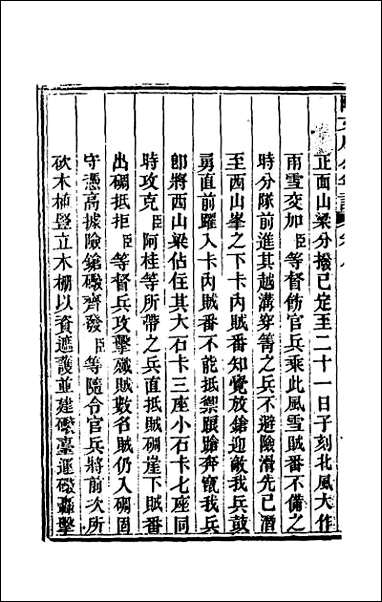 正面山梁分撥已定至二十一日子刻北風大作
雨雪交加臣等督飭官兵乘此風雪賊番不備之
時分隊前進其越溝穿箐之兵不避險滑先已潛
至西山峯之下卡內賊番知覺放鎗迎敵我兵鼓
勇直前躍入卡內賊番不能抵禦踉蹌奔竄我兵
卽將西山梁佔住其大石卡三座小石卡七座同
時攻克臣阿桂等所帶之兵直抵賊碉崖下賊番
出碉抵拒臣等督兵攻擊殲賊數名賊仍入碉固
守憑高據險鎗礮齊發臣等隨令官兵將前次所
砍木植豎立木柵以資遮護並建礮臺運礮轟擊